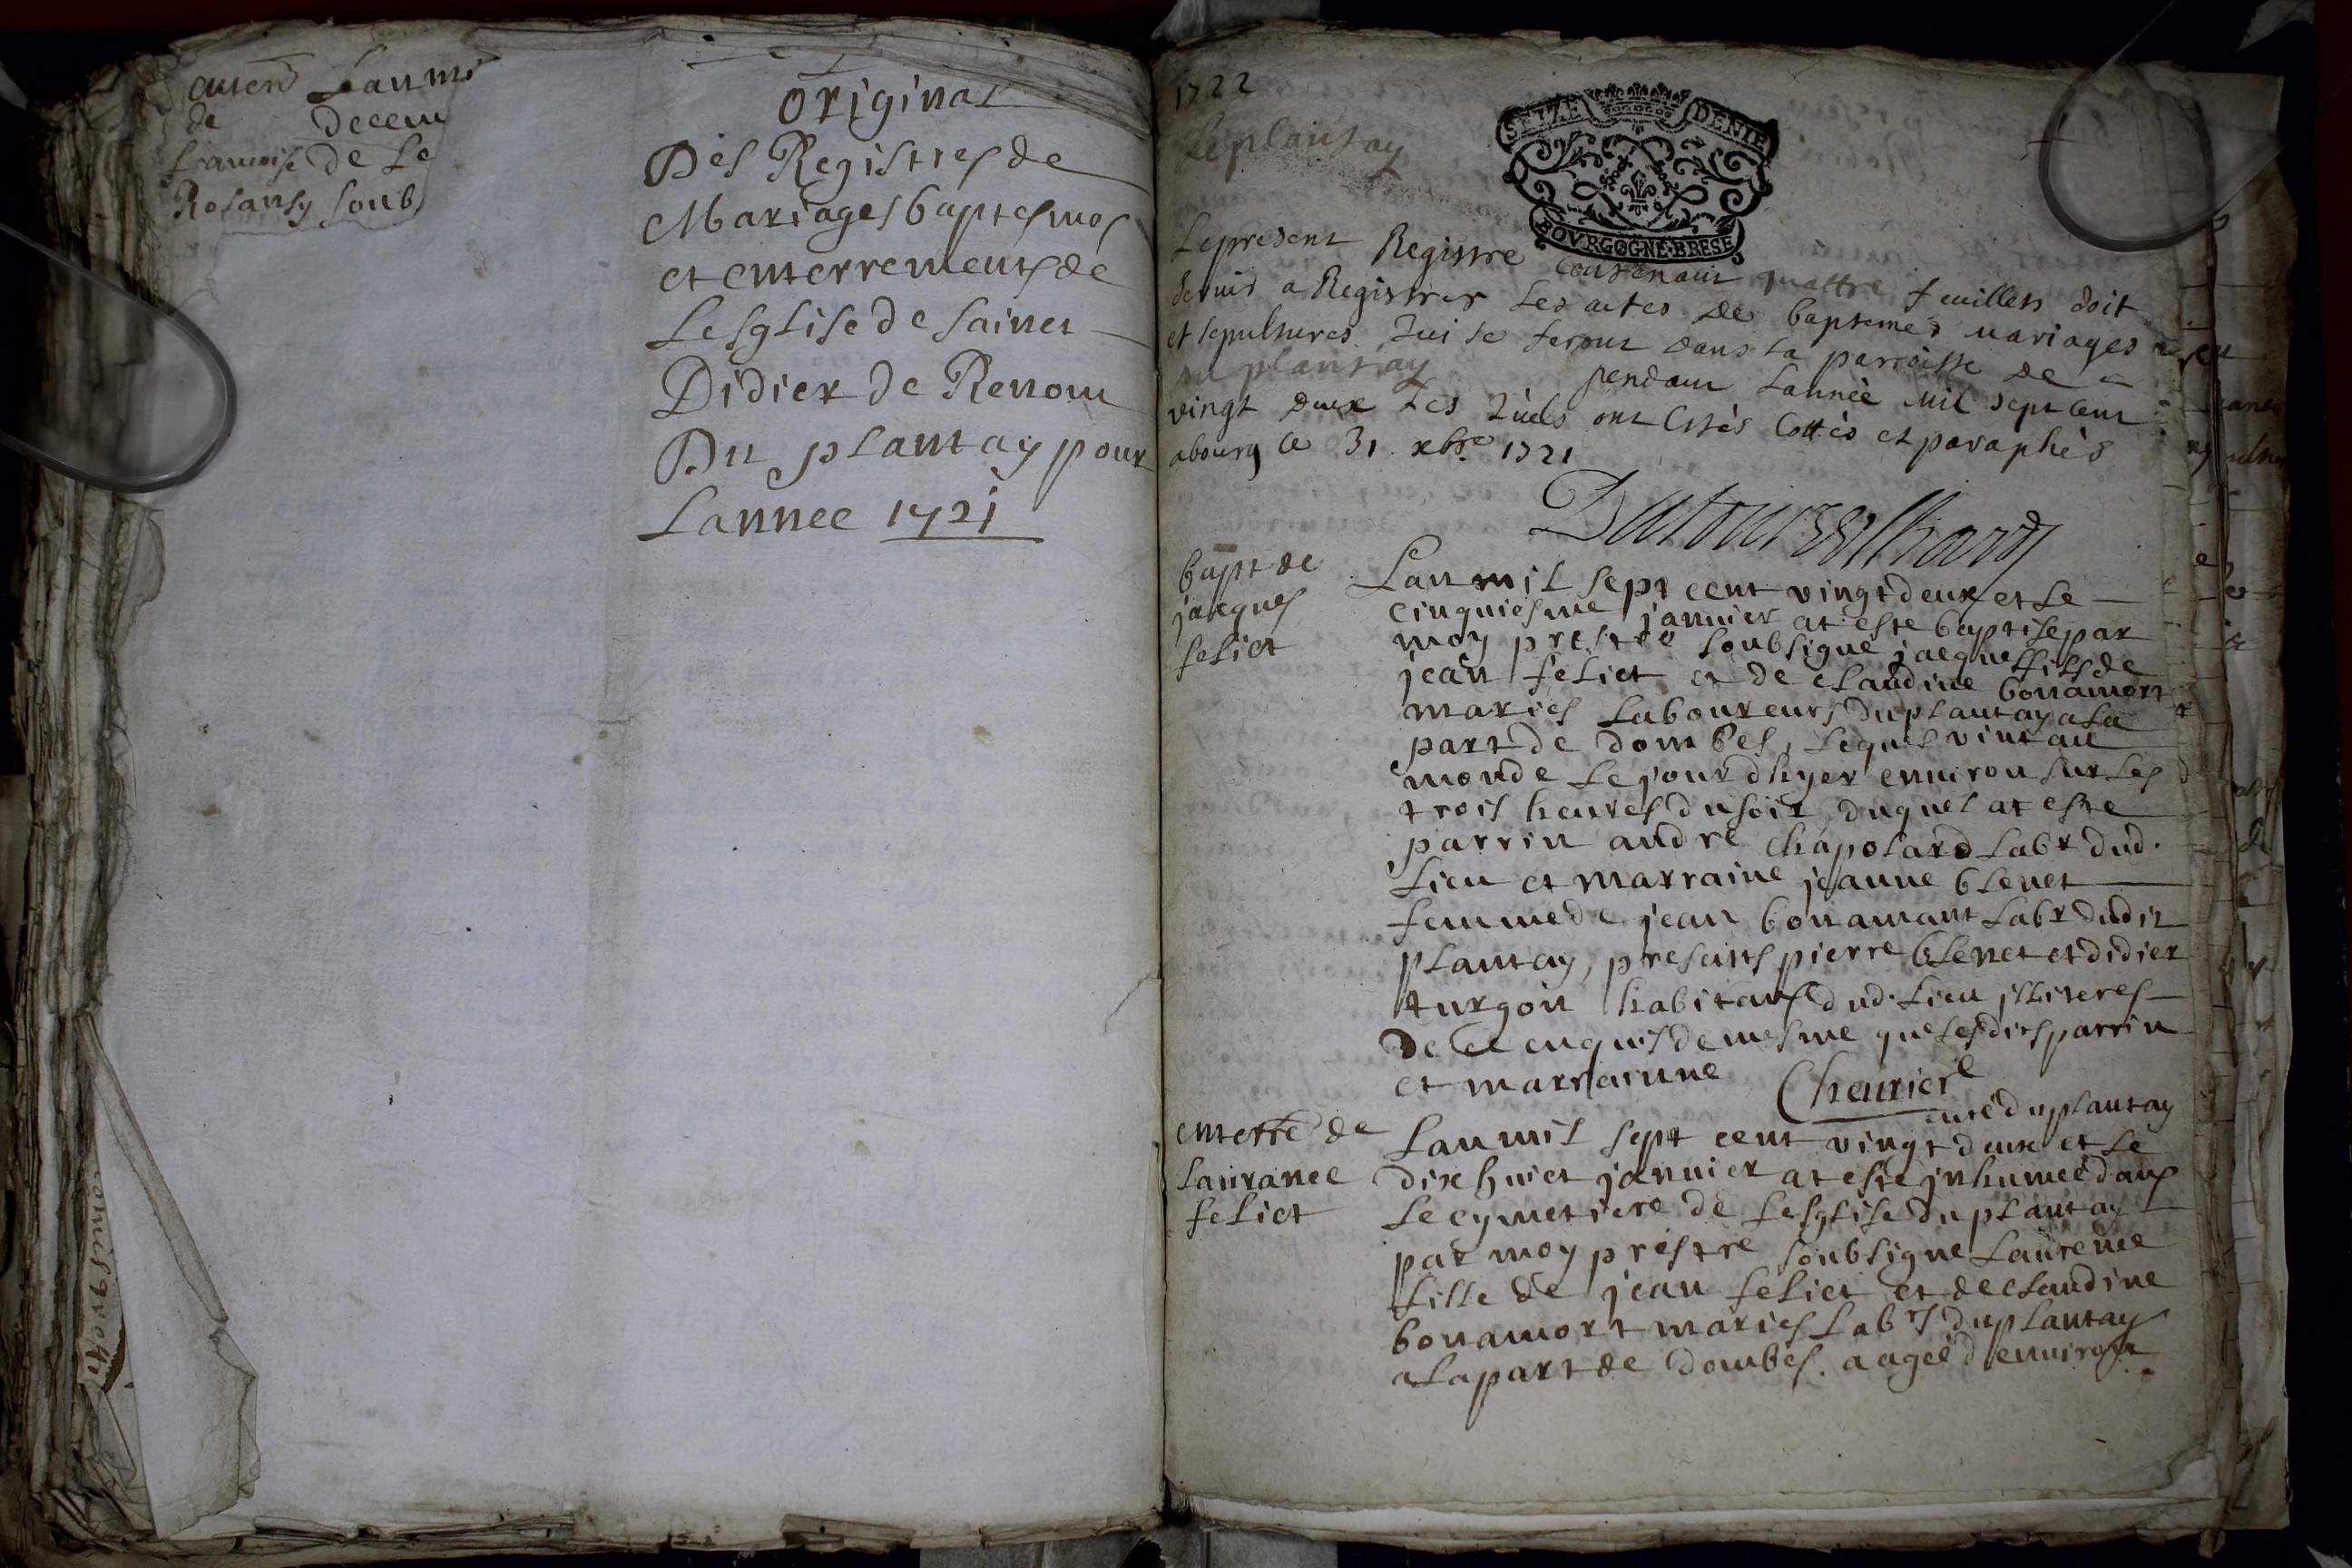 enterr
de
francoise
Rolansy
Lan mi
decem
de Le
soub
original
Des Registres de
Mariages baptesmes
et enterrements de
Lesglise de sainct
Didier de Renom
Du plantay pour
Lannee 1721
1722
Le plantay
SEIZE DENIE
BOVRGOGNE·BRESE
Le present Registre contenant quattre feuillets doit
servir a Registrer Les actes de baptemes mariages
et sepultures qui se feront dans La parroisse de
du plantay pendant Lannée mil sept cent
vingt deux Les quels ont estés Cottés et paraphés
abourg ce 31 xbre 1721
bapt de
jacques
feliet
Lan mil sept cent vingt deux et Le
cinquiesme janvier at este baptise par
moy prestre soubsigne jacque fils de
jean feliet et de claudine bonamort
maries Laboureurs du plantay a La
part de dombes, Lequel vint au
monde Le jourdhyer environ sur Les
trois heures du soir, duquel at este
parrin andre chapolard Labr dud.
Lieu et marraine jeanne blenet
femme de jean bonamant Labr dudit
plantay, presents pierre blenet et didier
turgon habitans dud. Lieu illiteres
de ce enquis de mesme que Lesdits parrin
et marrainne Cheurier
curé du plantay
enterre de
Laurance
feliet
Lan mil sept cent vingt deux et Le
dix huict janvier at este inhumée dans
Le cymetiere de Lesglise du plantay
par moy prestre soubsigne Laurence
fille de jean feliet et de claudine
bonamort maries Labrs du plantay
a La part de dombes. aagée denviron